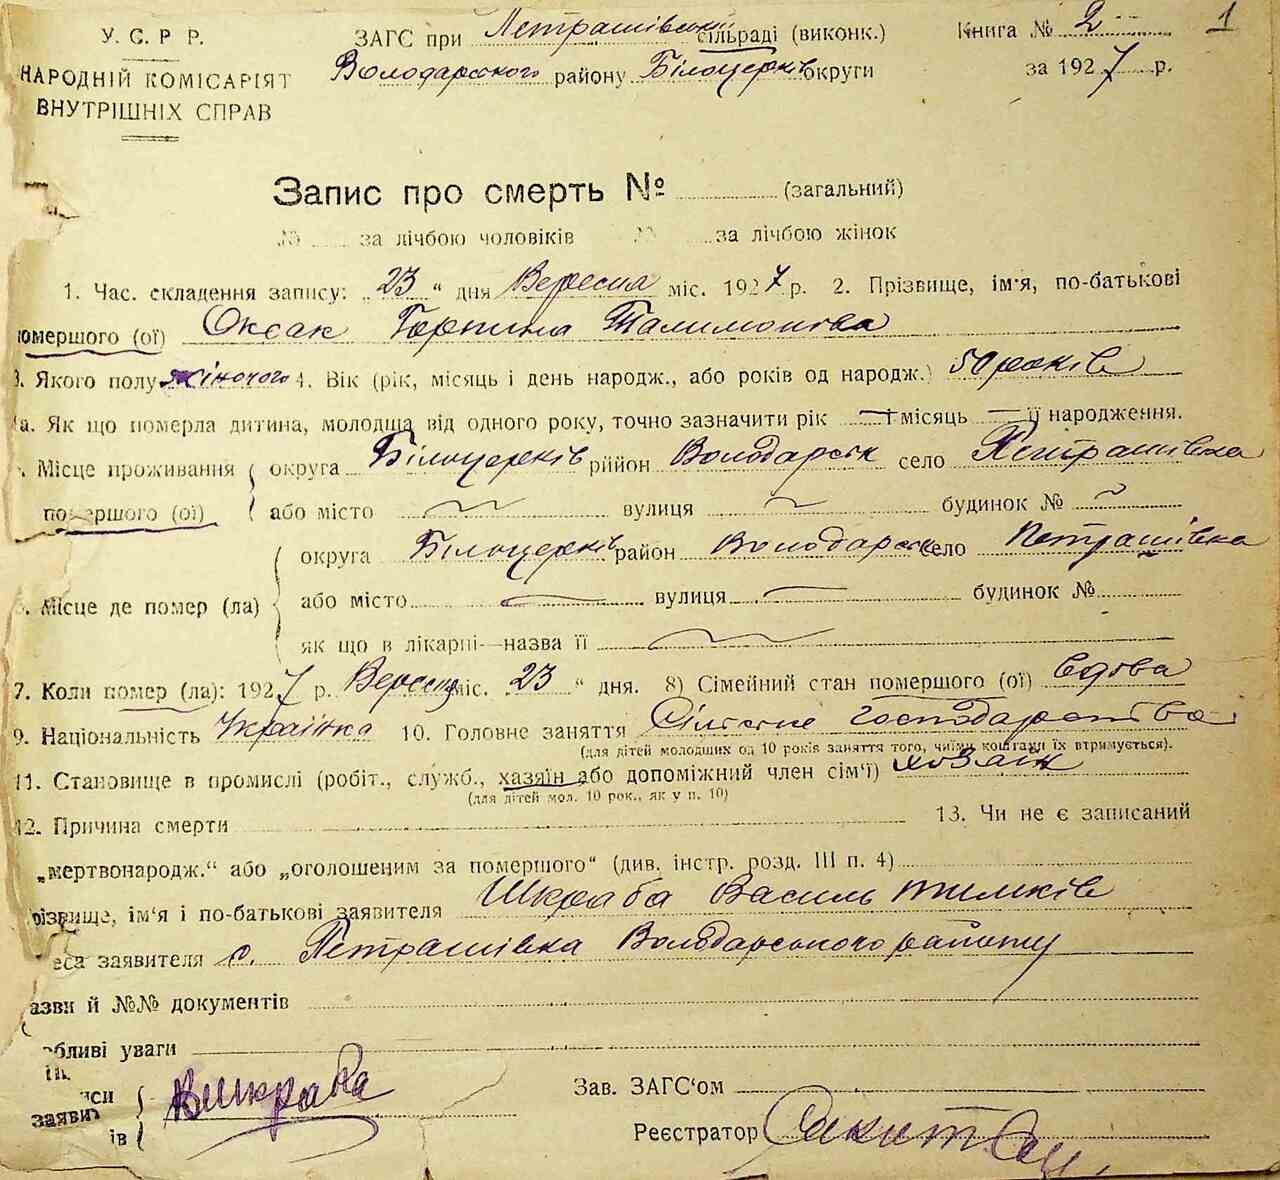 У. С. Р. Р.
НАРОДНІЙ КОМІСАРІЯТ
ВНУТРІШНІХ СПРАВ
ЗАГС при Петрашівській сільраді (виконк.)
Володарського району Білоцерків округи
Книга № 2
за 1927 р.
1
Запис про смерть № (загальний)
№ за лічбою чоловіків № за лічбою жінок
1. Час. складення запису: „23“ дня Вересня міс. 1927 р. 2. Прізвище, ім'я, по-батькові
помершого (ої) Оксак Горпина Талимонова
3. Якого полу жіночого 4. Вік (рік, місяць і день народж., або років од народж.) 50 років
а. Як що померла дитина, молодща від одного року, точно зазначити рік — місяць — її народження.
Місце проживання округа Білоцерків рийон Володарськ село Петрашівка
помершого (ої) або місто вулиця будинок №
округа Білоцерків район Володарськ село Петрашівка
Місце де помер (ла) або місто вулиця будинок №
як що в лікарні—назва її
7. Коли помер (ла): 1927 р. Вересня міс. 23 “ дня. 8) Сімейний стан помершого (ої) Вдова
9. Національність Українка 10. Головне заняття Сільське господарство
(для дітей молодших од 10 років заняття того, чиїми коштами їх втримується).
11. Становище в промислі (робіт., служб., хазяїн або допоміжний член сім'ї) хозяїн
(для дітей мол. 10 рок., як у п. 10)
12. Причина смерти 13. Чи не є записаний
„мертвонародж.“ або „оголошеним за помершого“ (див. інстр. розд. III п. 4)
різвище, ім'я і по-батькові заявителя Шкраба Василь Тимків
еса заявителя с. Петрашівка Володарського району
азви й №№ документів
обливі уваги
иси
заяви
ів
ВШкраба
Зав. ЗАГС'ом
Реєстратор